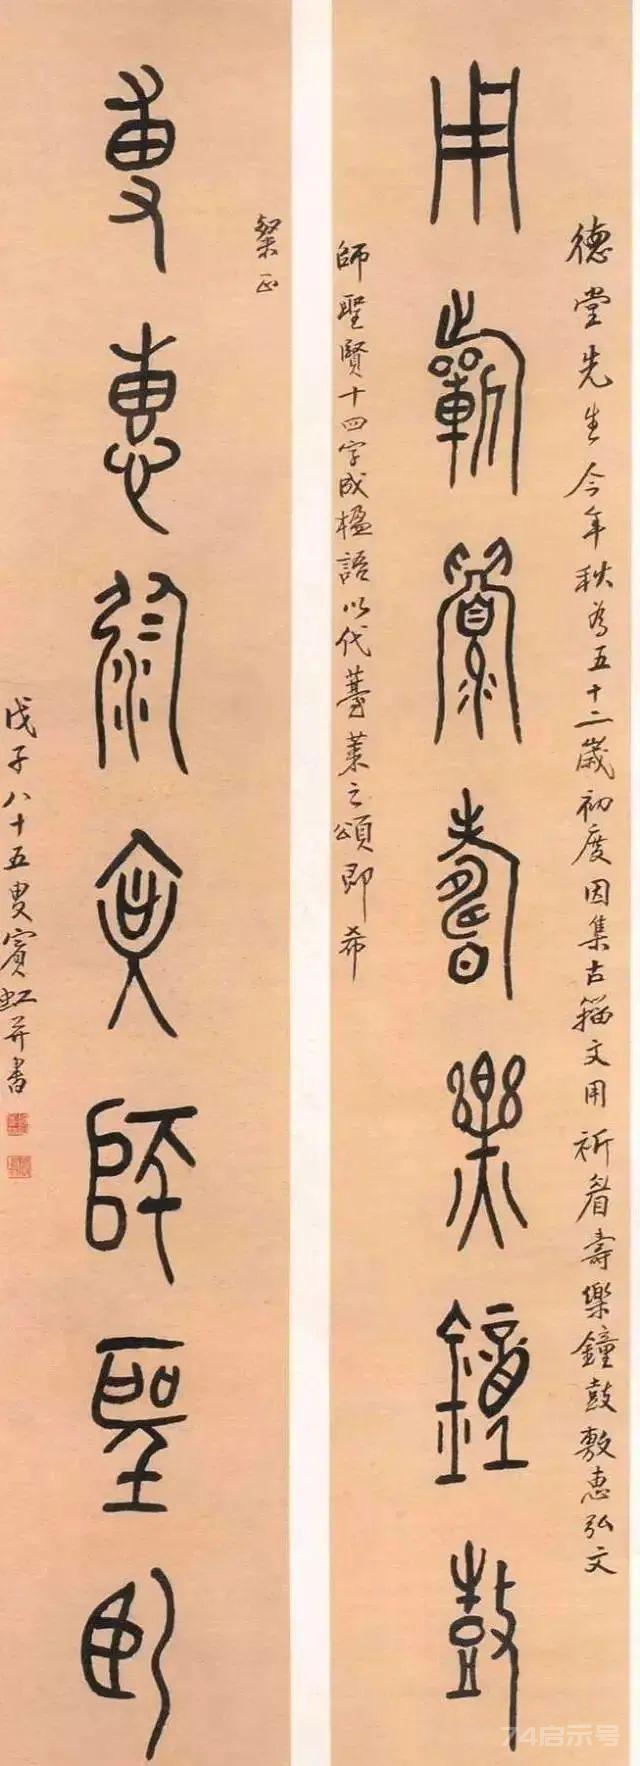 德堂先生今年秋為五十二歲初度因集古籀文用祈眉壽樂鐘鼓敷惠弘文
用祈眉壽樂鐘鼓
師聖賢十四字成楹語以代薹萊之頌即希
粲正
敷惠弘文師聖賢
戊子八十五叟賓虹并書
74启示号